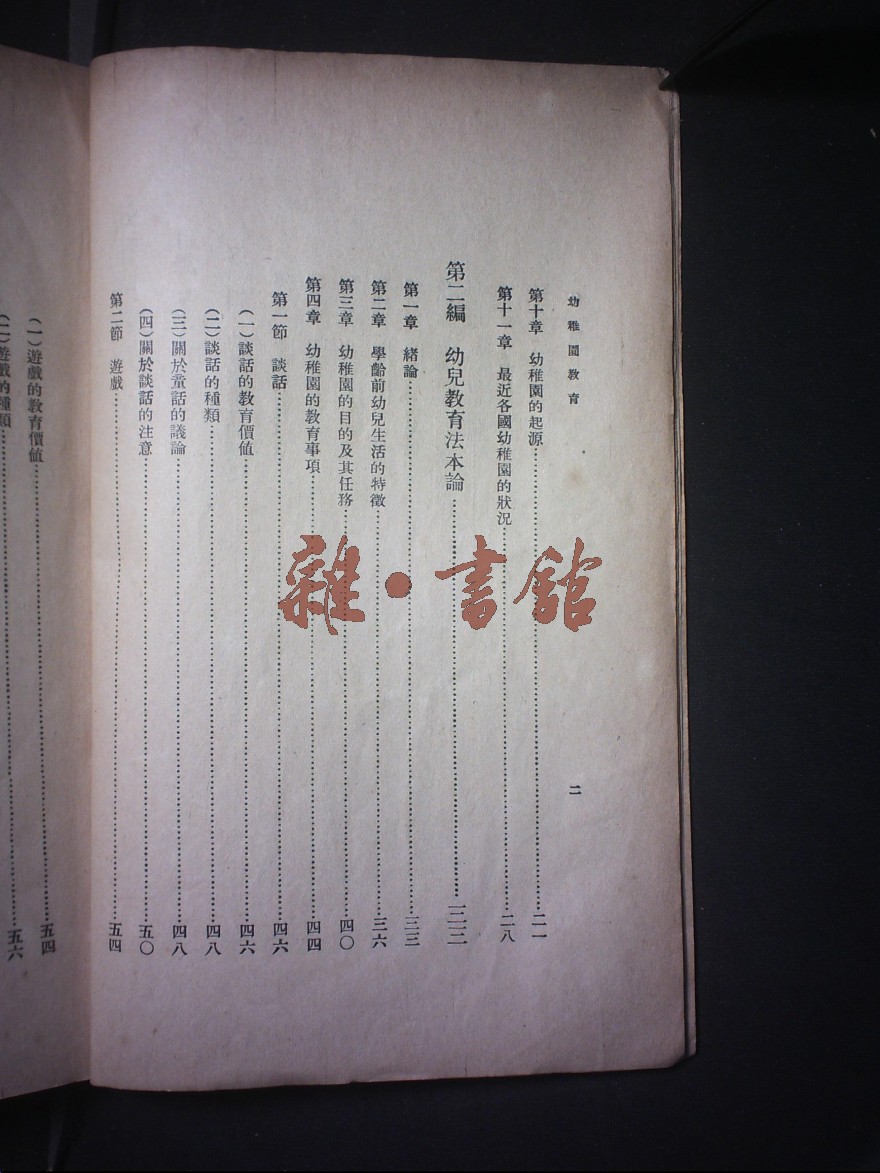 幼稚園教育
二
第十章 幼稚園的起源……二一
第十一章 最近各國幼稚園的狀況……二八
第二編 幼兒教育法本論……三三
第一章 緒論……三三
第二章 學齡前幼兒生活的特徵……三六
第三章 幼稚園的目的及其任務……四〇
第四章 幼稚園的教育事項……四四
第一節 談話……四六
(一)談話的教育價值……四六
(二)談話的種類……四八
(三)關於童話的議論……四八
(四)關於談話的注意……五〇
第二節 遊戲……五四
(一)遊戲的教育價值……五四
(二)遊戲的種類……五六
雜·書館